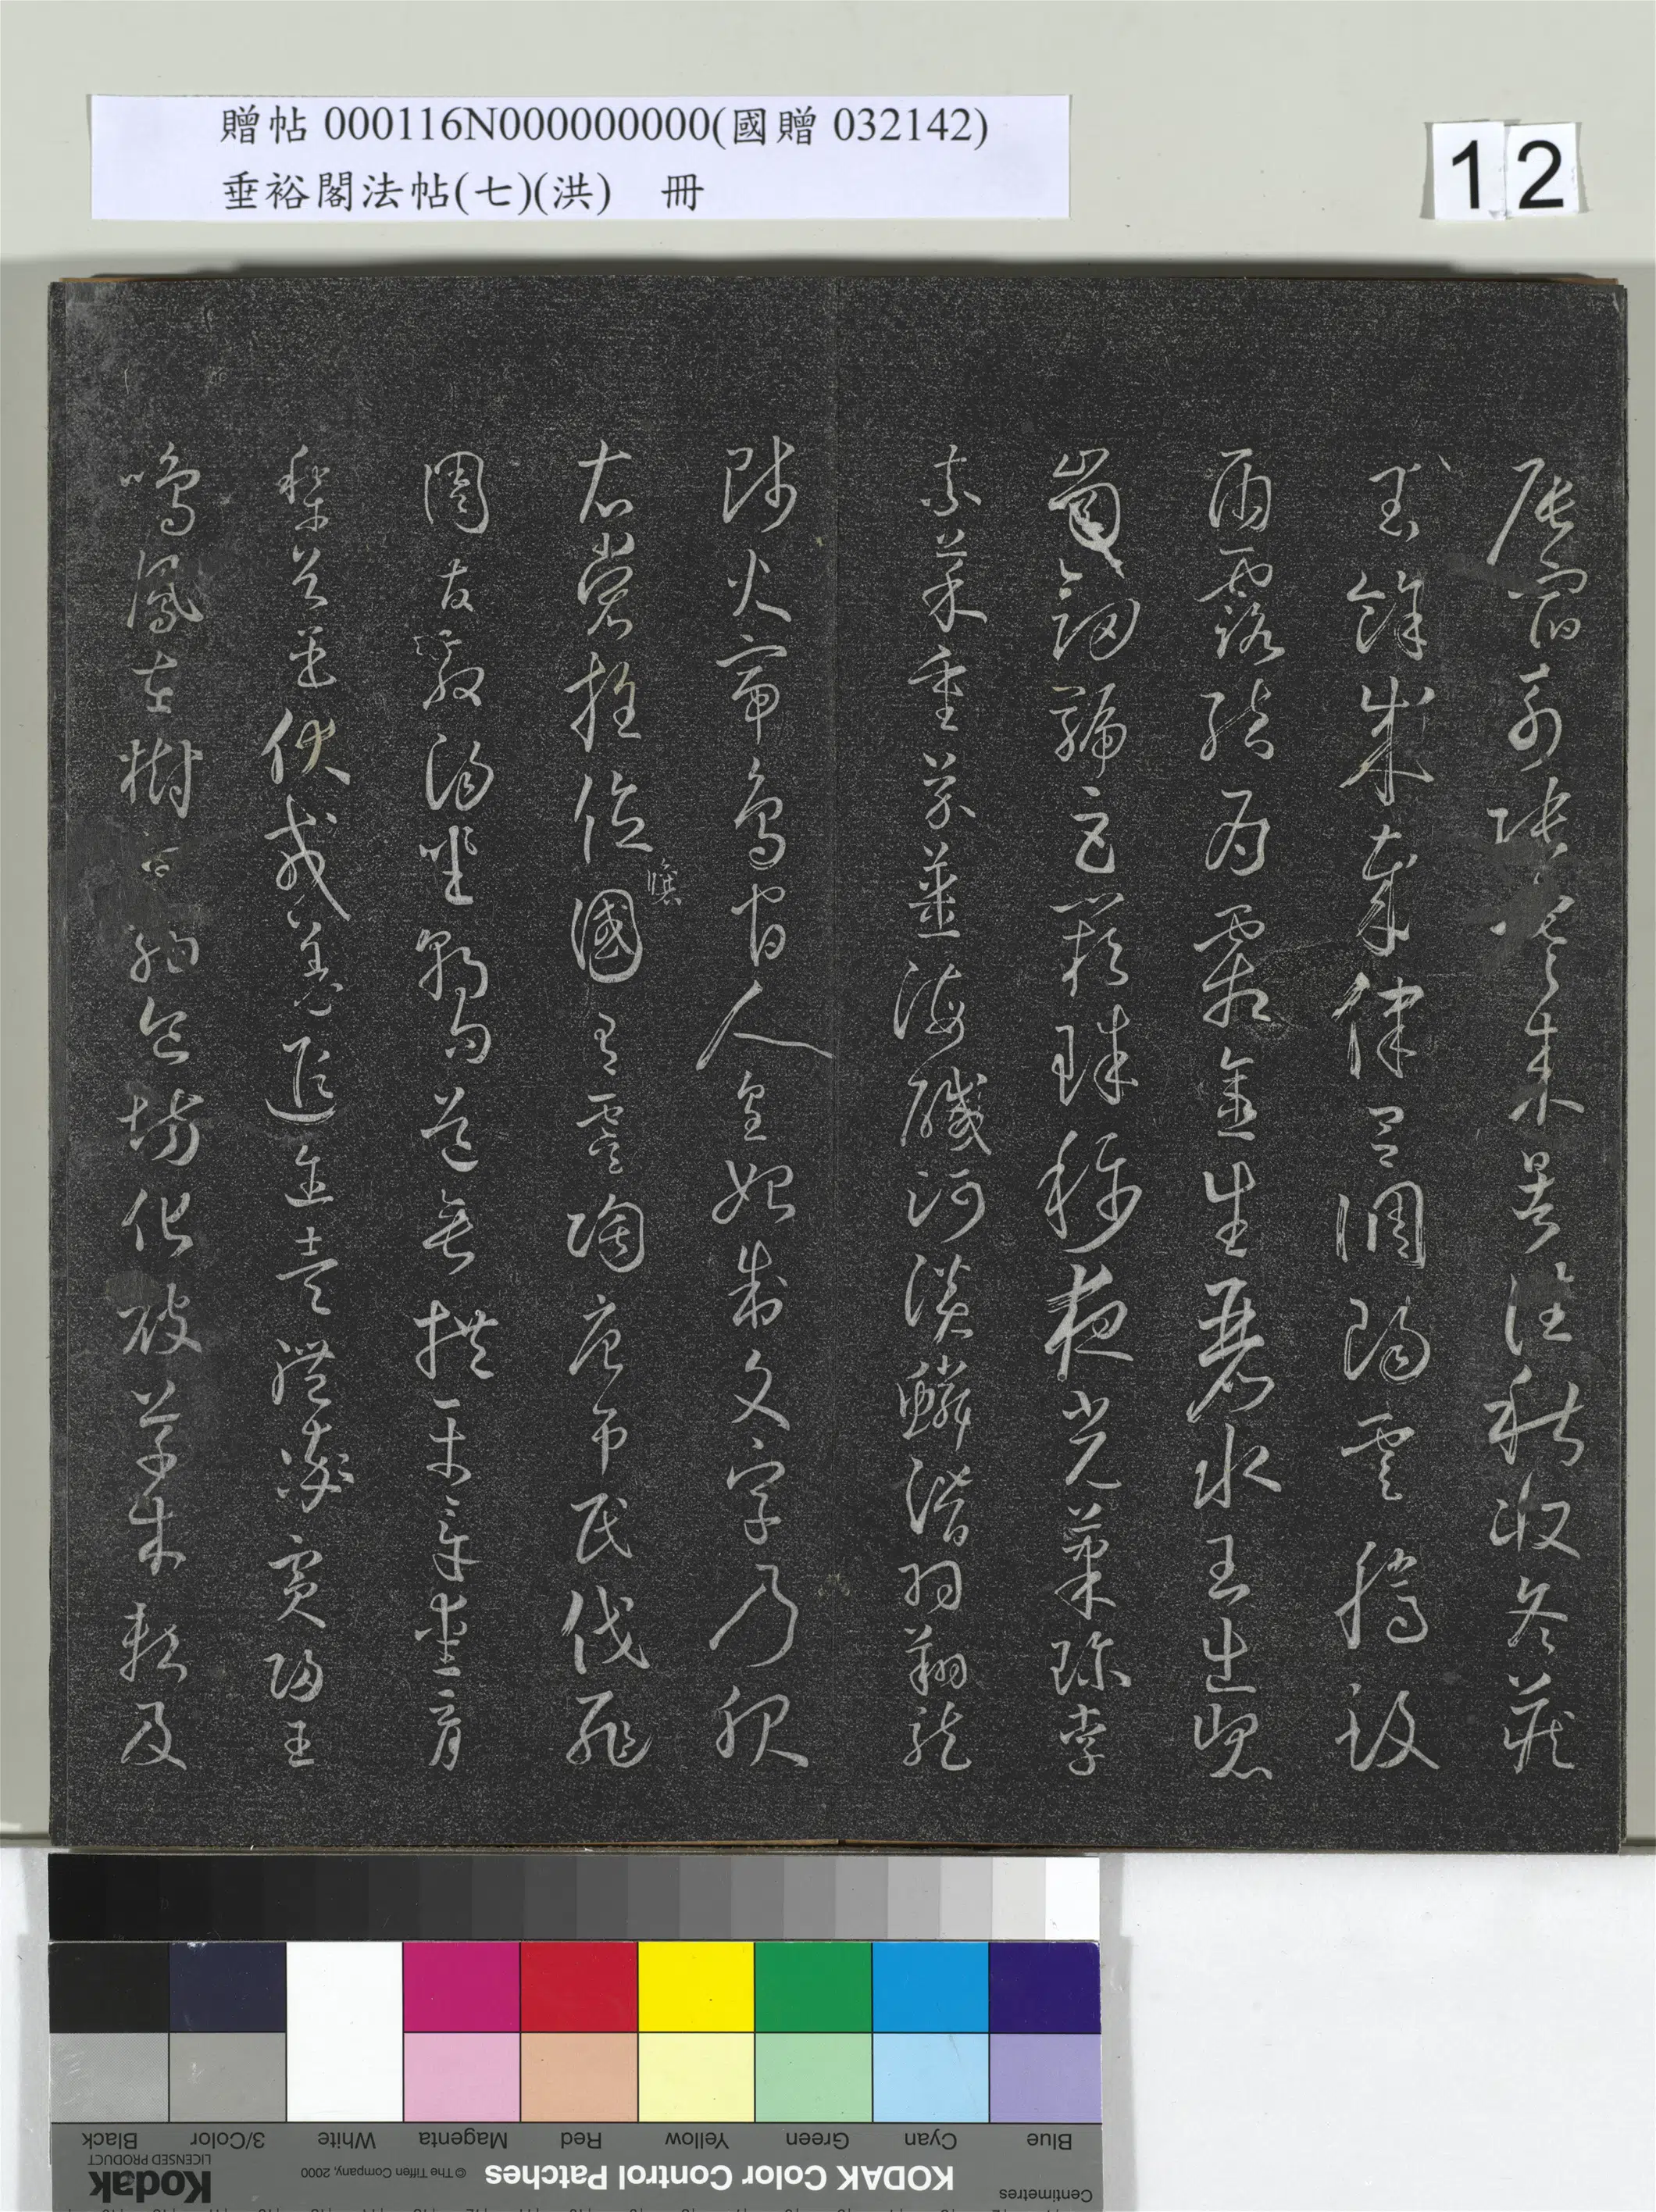 贈帖 000116N000000000(國贈 032142)
垂裕閣法帖(七)(洪) 冊
12
辰宿列張寒來暑往秋收冬藏
閏餘成歲律呂調陽雲騰致
雨露結為霜金生麗水玉出崐
崗劍號巨闕珠稱夜光菓珍李
柰菜重芥薑海醎河淡鱗潛羽翔龍
師火帝鳥官人皇始制文字乃服
衣裳推位讓國有虞陶唐弔民伐罪
周發殷湯坐朝問道垂拱平章愛育
黎首臣伏戎羌遐邇壹體率賓歸王
鳴鳳在樹白駒食場化被草木賴及
Centimetres
KODAK Color Control Patches
© The Tiffen Company, 2000
Kodak
LICENSED PRODUCT
Blue Cyan Green Yellow Red Magenta White 3/Color Black